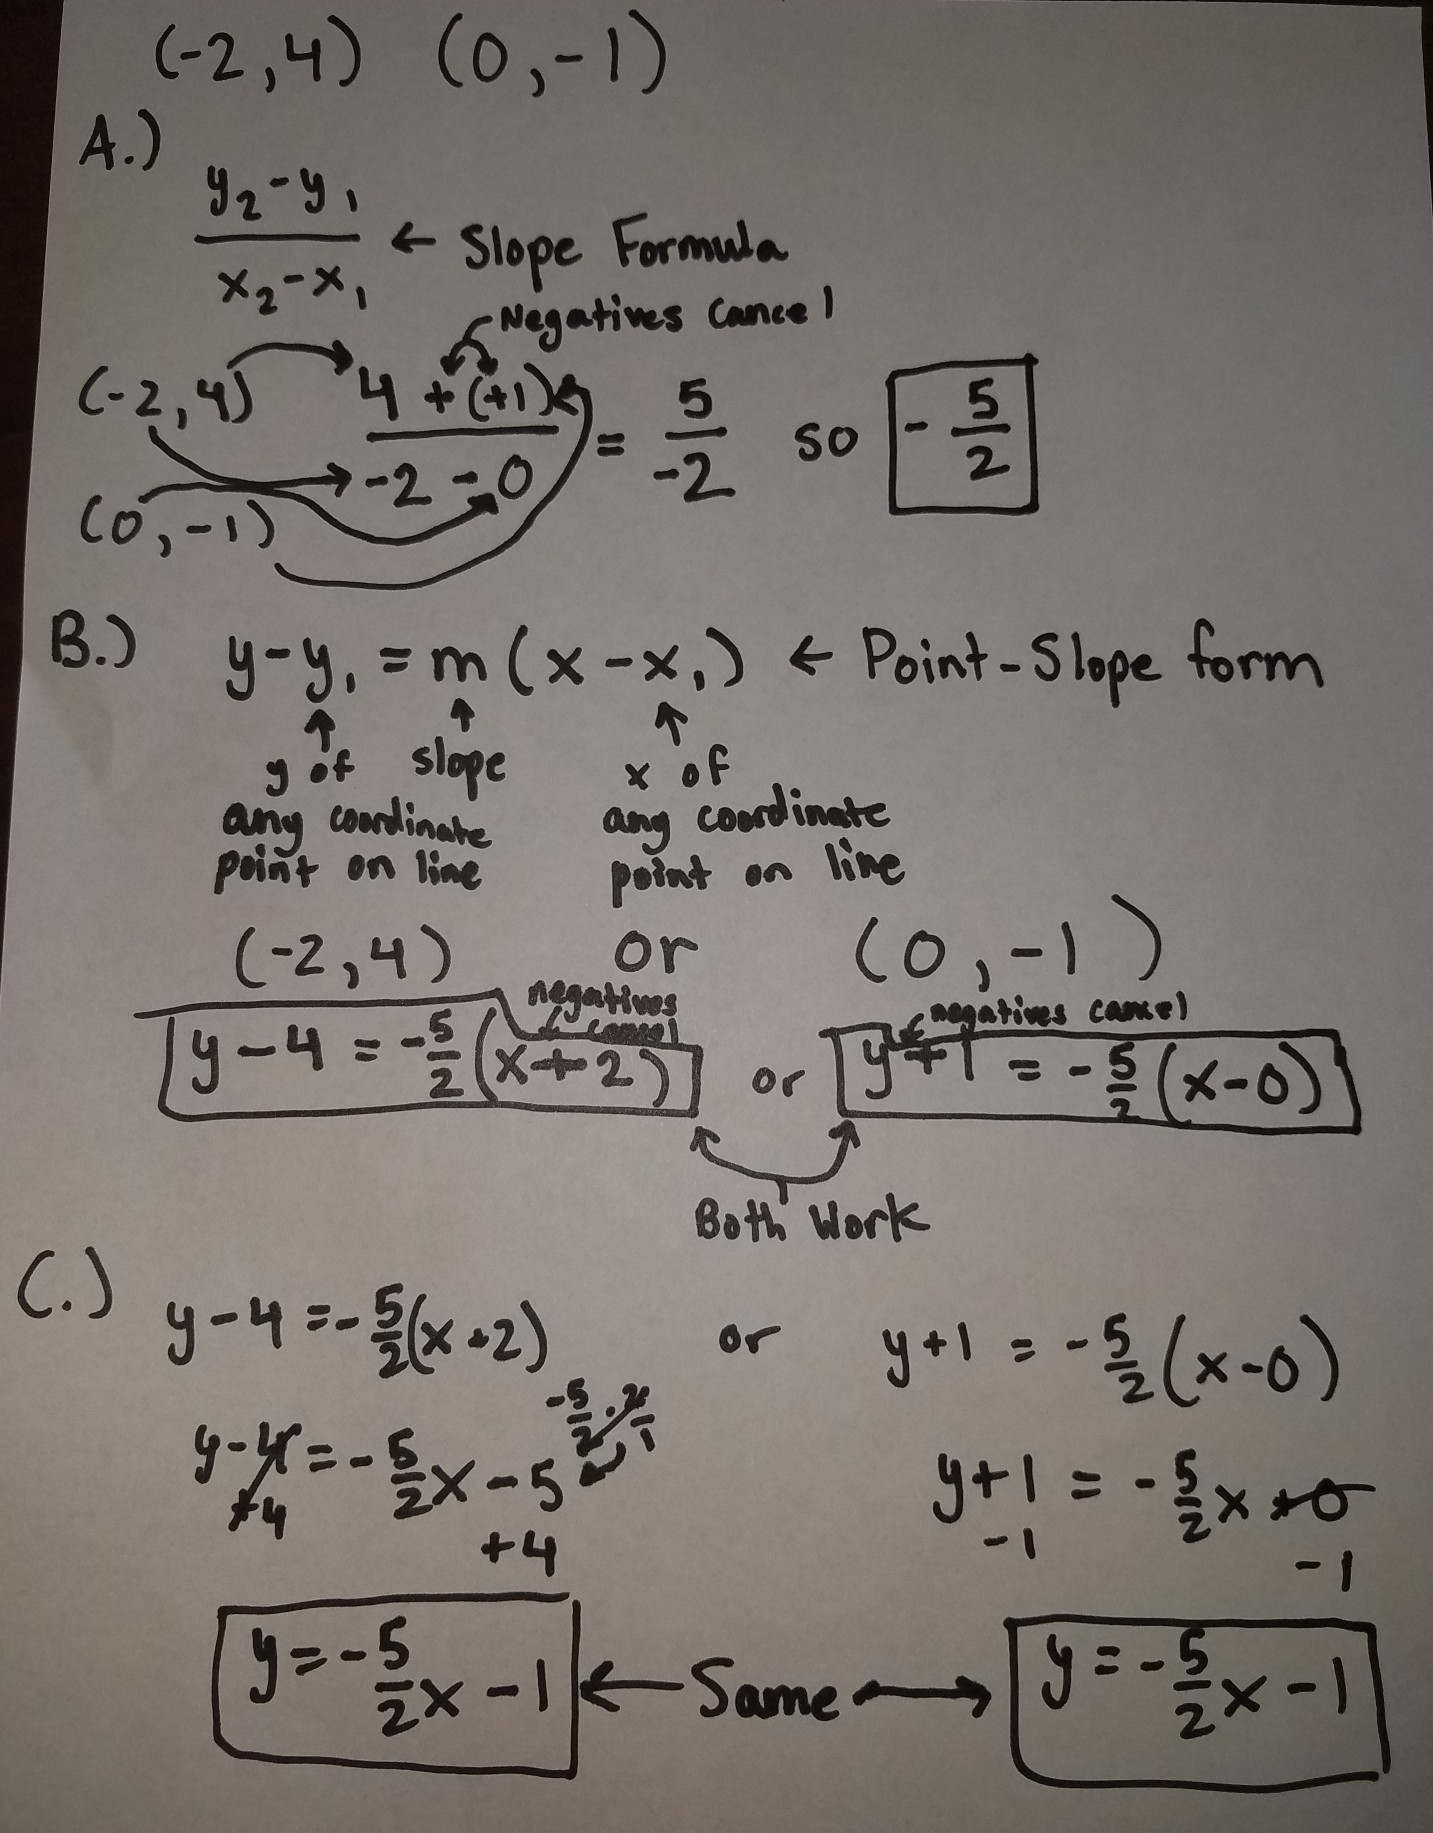 (-2,4) (0,-1)
A.)
y₂-y₁
x₂-x₁
← Slope Formula
Negatives Cancel
(-2,4)
4 + (+1)
-2 - 0
(0,-1)
= 5/-2 so -5/2
B.) y-y₁ = m(x-x₁) ← Point-Slope form
y of any coordinate point on line
slope
x of any coordinate point on line
(-2,4) or (0,-1)
negatives cancel
negatives cancel
y-4 = -5/2(x+2) or y+1 = -5/2(x-0)
Both Work
C.) y-4 = -5/2(x+2) or y+1 = -5/2(x-0)
-5/2 · 2/1
y-4 = -5/2x - 5
+4 +4
y+1 = -5/2x + 0
-1 -1
y = -5/2x - 1 ← Same → y = -5/2x - 1